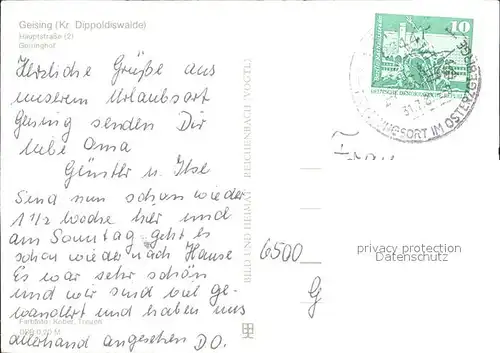 Geising (Kr. Dippoldiswalde)
Hauptstraße (2)
Geisinghof
Herzliche Grüße aus
unserem Urlaubsort
Geising senden Dir
liebe Oma
Günther u. Ilse
Sind nun schon wieder
1 1/2 Woche hier und
am Sonntag geht es
schon wieder nach Hause
Es war sehr schön
und wir sind viel ge-
wandert und haben uns
allerhand angesehen D.O.
Farbfoto: Kober, Treuen
0,20 M
BILD UND HEIMAT REICHENBACH VOGTL
10
ORT IM OSTERZGEBIRGE
6500
G
privacy protection
Datenschutz